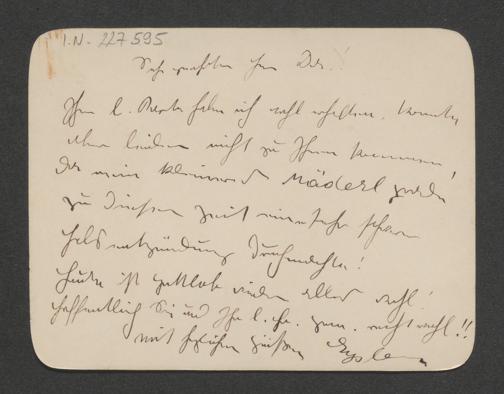 I.N. 227595
Sehr geehrter Herr Dr.!
Ihre l. Karte habe ich wohl erhalten, konnte
aber leider nicht zu Ihnen kommen,
da mein kleines Mäderl gerade
zu dieser Zeit eine sehr schwere
Halsentzündung durchmachte!
Heute ist gottlob wieder alles wohl!
Hoffentlich Sie und Ihre l. Fr. Gem. recht wohl!!
mit herzlichen Grüßen Eysler